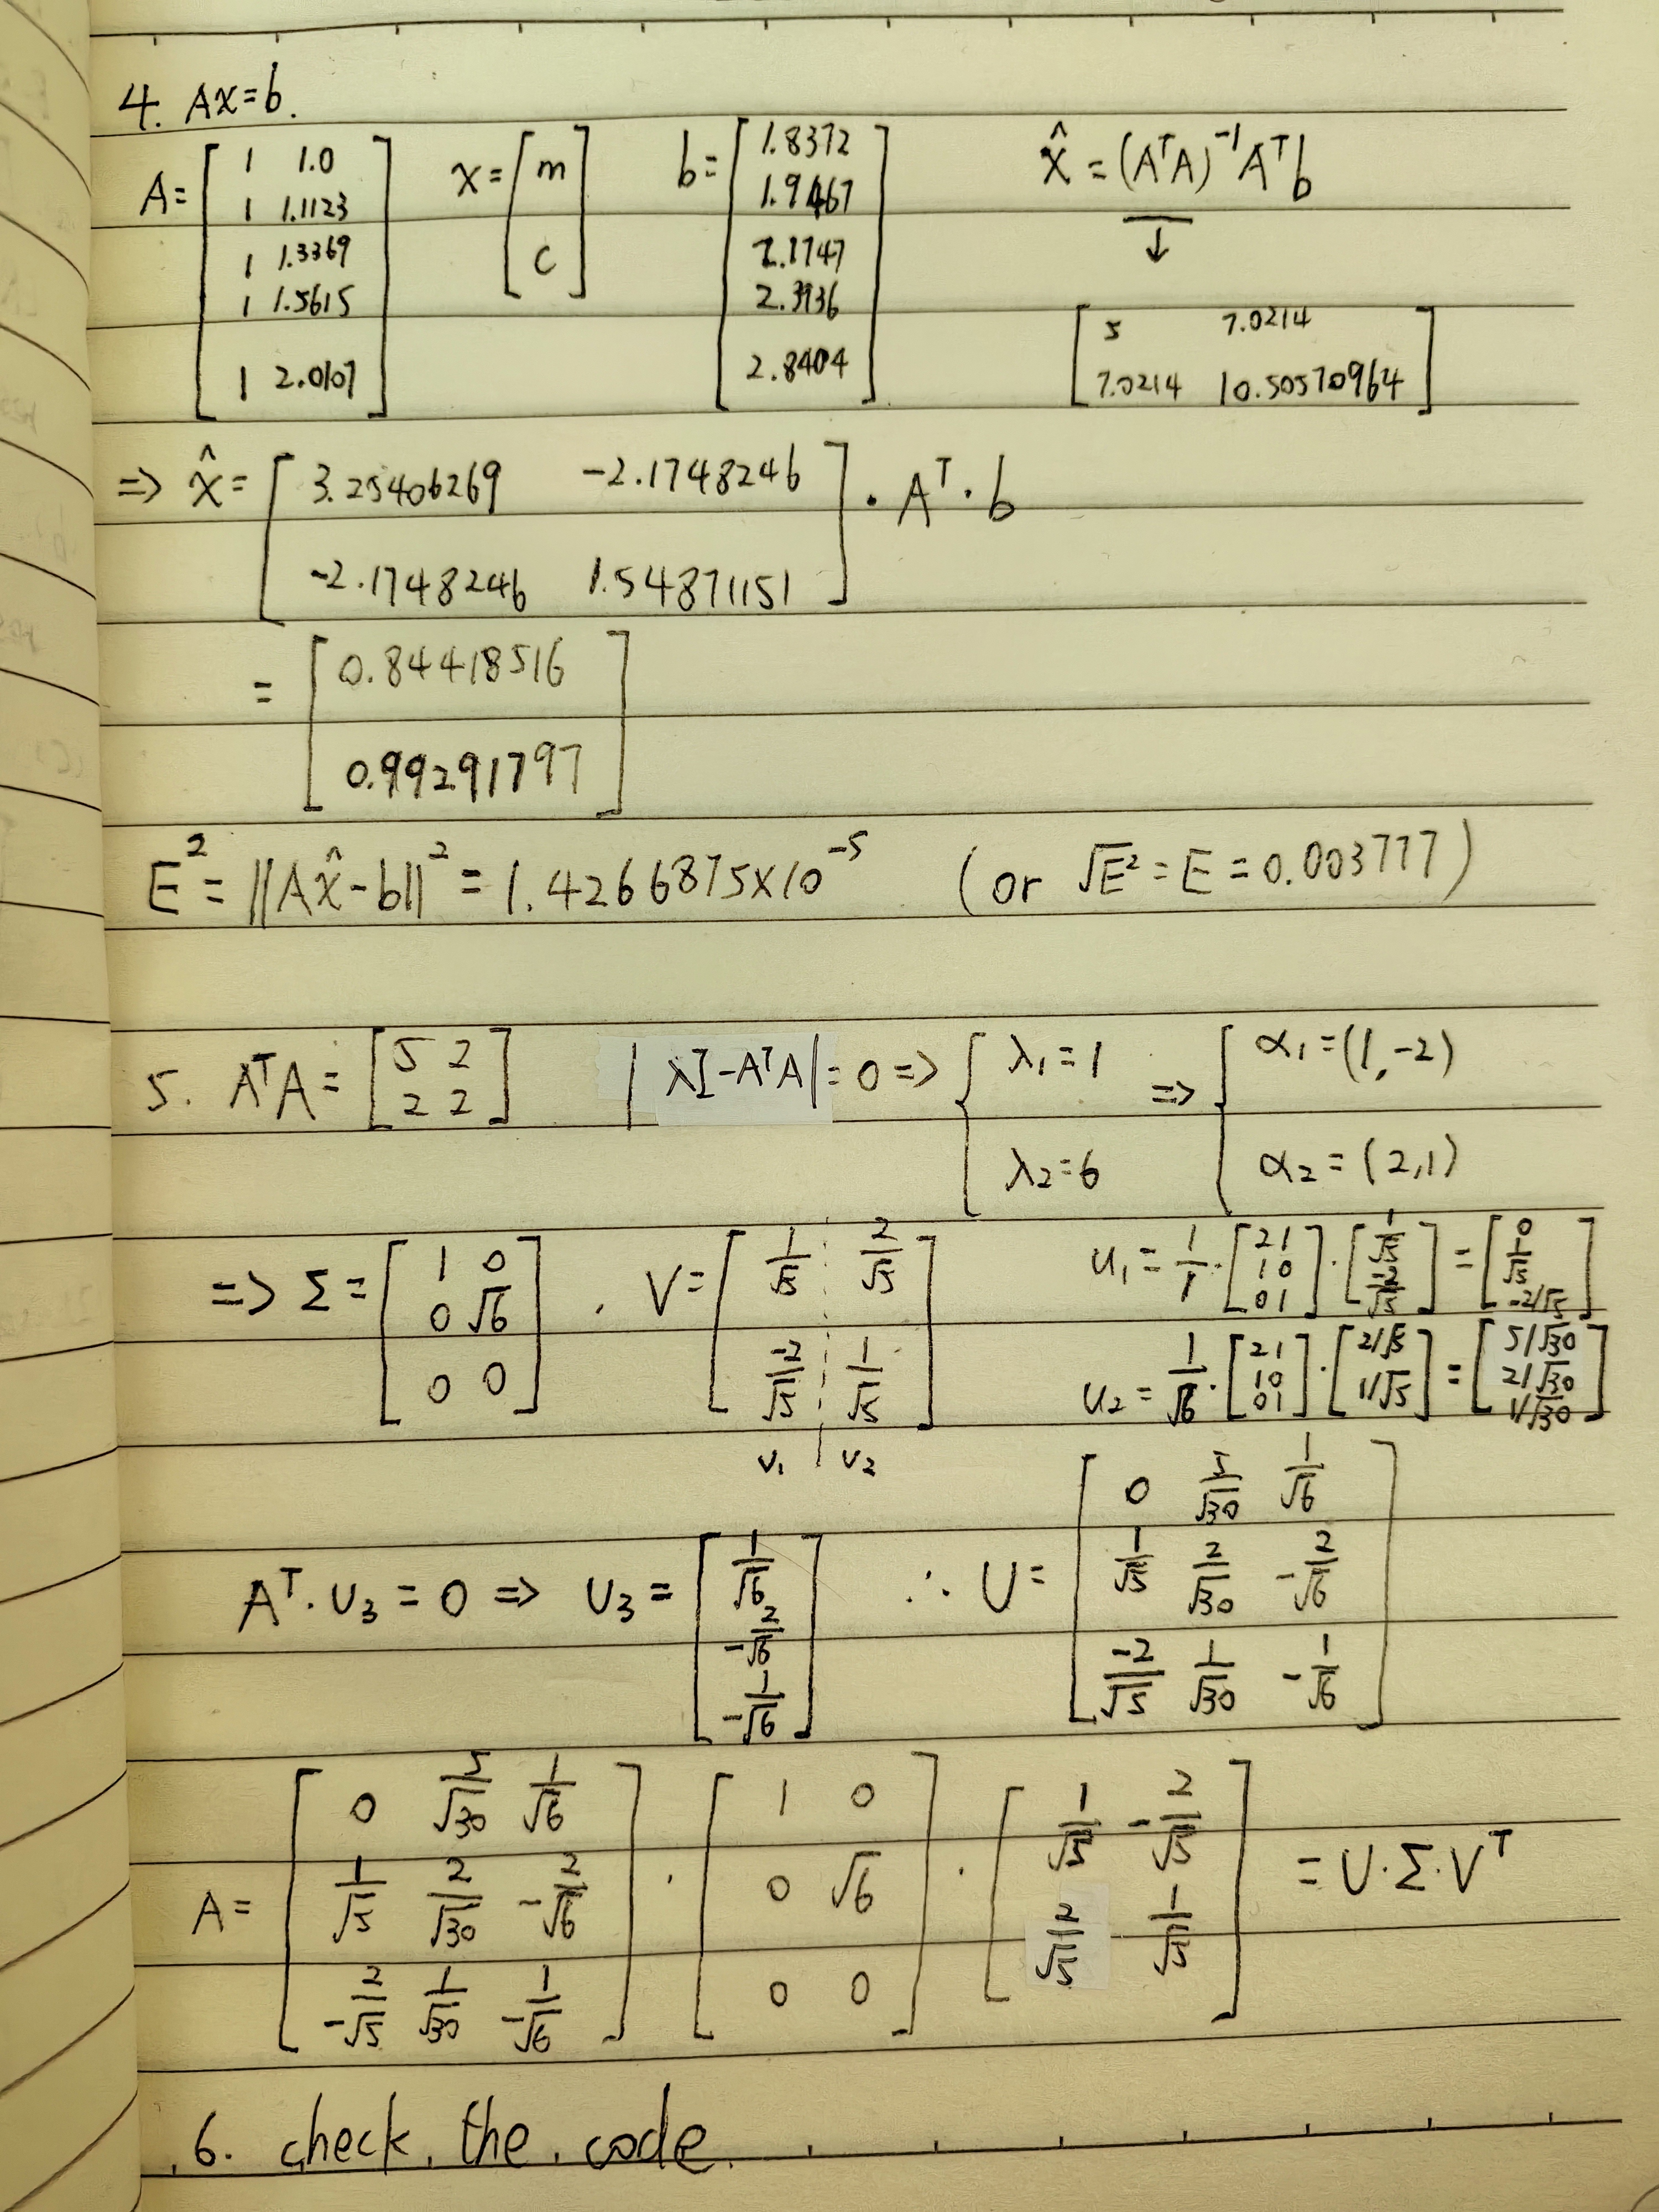 4. Ax=b.
A= [ 1 1.0 ; 1 1.1123 ; 1 1.3369 ; 1 1.5615 ; 1 2.0107 ] x= [ m ; c ] b= [ 1.8372 ; 1.9467 ; 2.1747 ; 2.3936 ; 2.8404 ] x̂ = (AᵀA)⁻¹Aᵀb
↓
[ 5 7.0214 ; 7.0214 10.50570964 ]
=> x̂= [ 3.25406269 -2.1748246 ; -2.1748246 1.54871151 ] · Aᵀ · b
= [ 0.84418516 ; 0.99291797 ]
E² = ||Ax̂-b||² = 1.4266875×10⁻⁵ (or √E² = E = 0.003777)
5. AᵀA = [ 5 2 ; 2 2 ] |λI-AᵀA|=0 => { λ₁=1 ; λ₂=6 => { α₁=(1,-2) ; α₂=(2,1)
=> Σ= [ 1 0 ; 0 √6 ; 0 0 ] . V= [ 1/√5 2/√5 ; -2/√5 1/√5 ]
v₁ | v₂
u₁ = 1/1 · [ 2 1 ; 1 0 ; 0 1 ] · [ 1/√5 ; -2/√5 ] = [ 0 ; 1/√5 ; -2/√5 ]
u₂ = 1/√6 · [ 2 1 ; 1 0 ; 0 1 ] · [ 2/√5 ; 1/√5 ] = [ 5/√30 ; 2/√30 ; 1/√30 ]
Aᵀ·U₃ = 0 => U₃ = [ 1/√6 ; -2/√6 ; -1/√6 ] ∴ U= [ 0 5/√30 1/√6 ; 1/√5 2/√30 -2/√6 ; -2/√5 1/√30 -1/√6 ]
A= [ 0 5/√30 1/√6 ; 1/√5 2/√30 -2/√6 ; -2/√5 1/√30 -1/√6 ] · [ 1 0 ; 0 √6 ; 0 0 ] · [ 1/√5 -2/√5 ; 2/√5 1/√5 ] = U·Σ·Vᵀ
6. check the code.